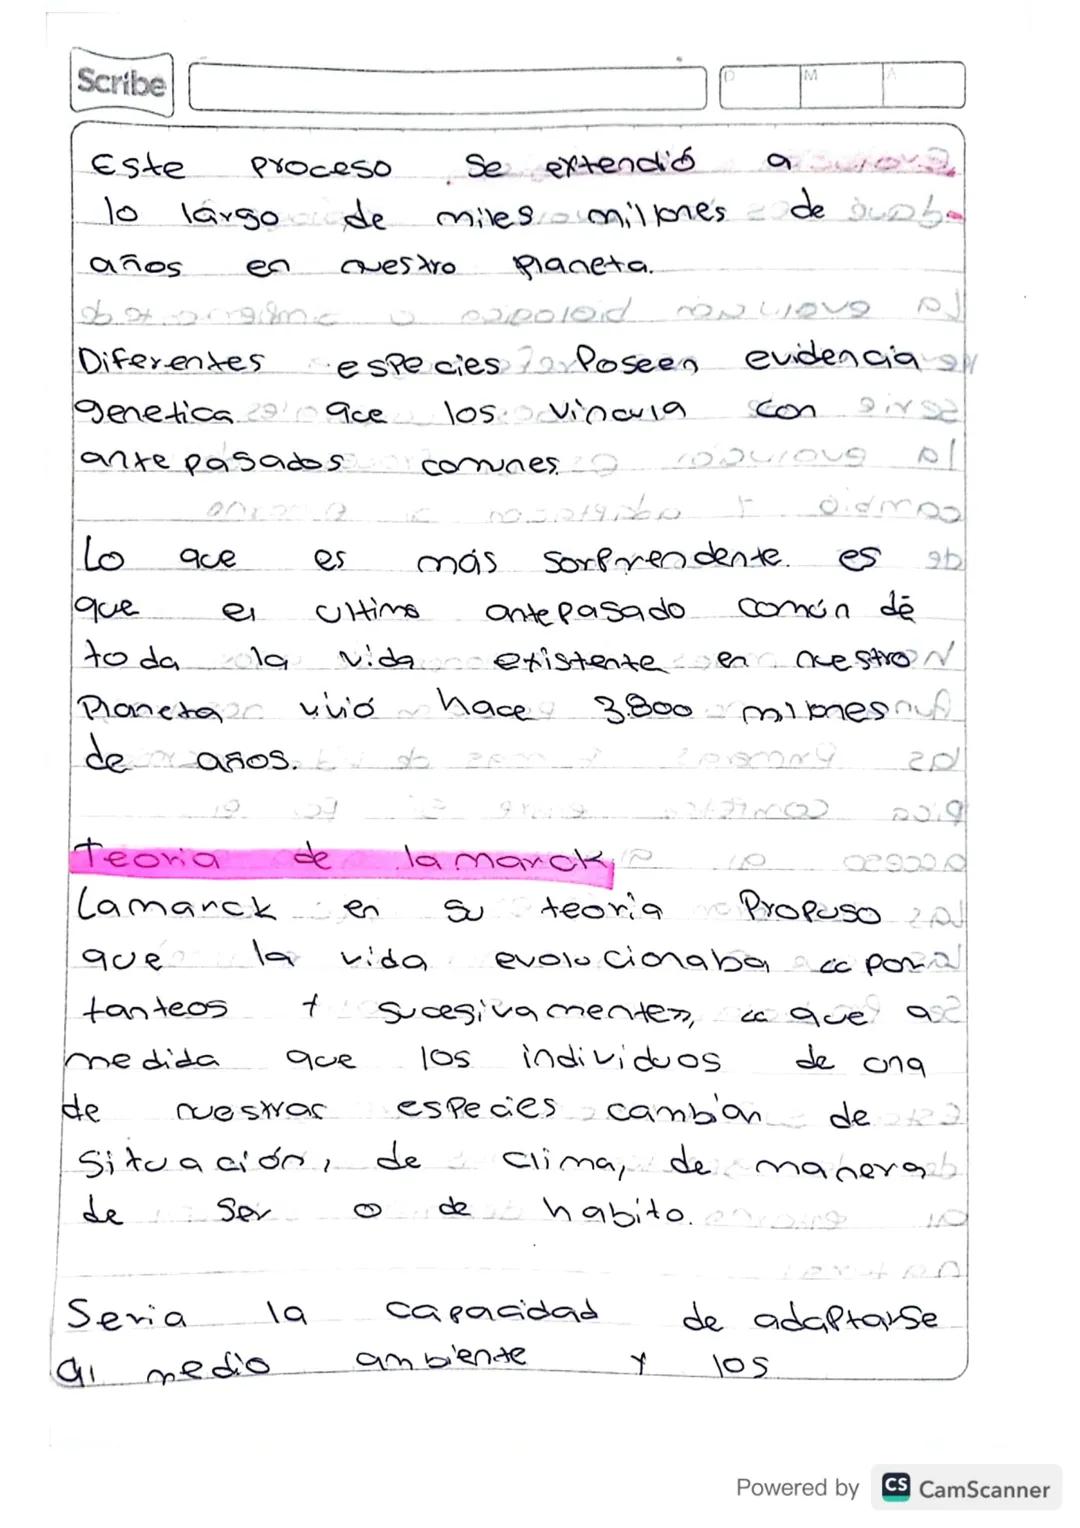 Scribe
D M A
Este proceso se extendió a
lo largo de miles millones de
años en nuestro planeta.
Diferentes especies Poseen evidencia
genetica que los vincula con
antepasados comunes
Lo que es más sorprendente es
que el ultimo antepasado común de
toda la vida existente en nuestro
Planeta vivió hace 3.800 millones
de años.
Teoria de lamarck
Lamarck en su teoria Propuso
que la vida evolucionaba «por
tanteos y sucesivamente», «que a
medida que los individuos de una
de nuestras especies cambian de
situación, de clima, de manera
de ser o de habito.
Seria la capacidad de adaptarse
al medio ambiente y los
Powered by CS CamScanner